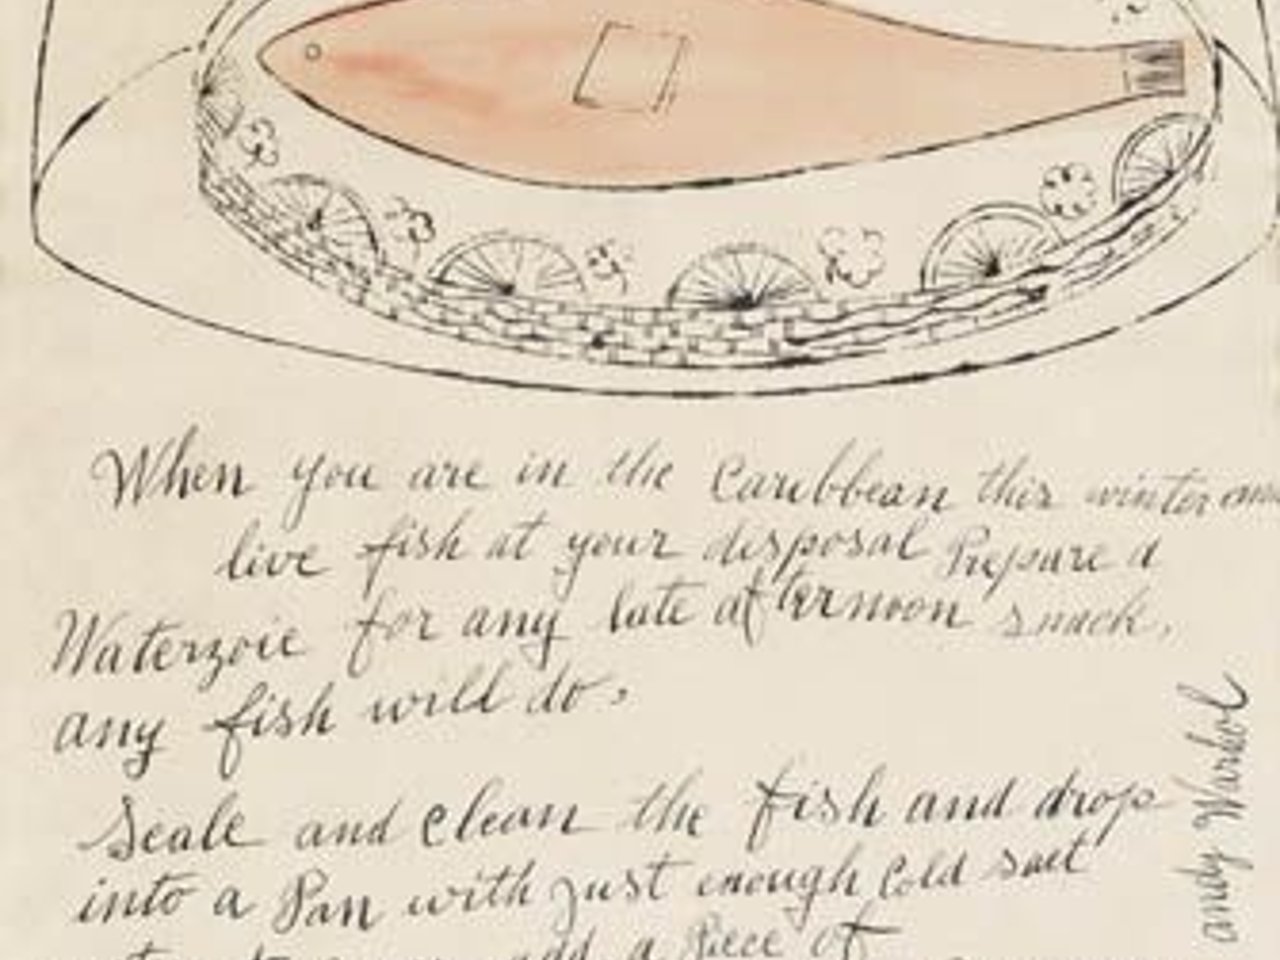 When you are in the Caribbean this winter
live fish at your disposal Prepare a
Waterzoie for any late afternoon snack,
any fish will do,
Scale and clean the fish and drop
into a Pan with just enough Cold salt
add a Piece of
andy Warhol